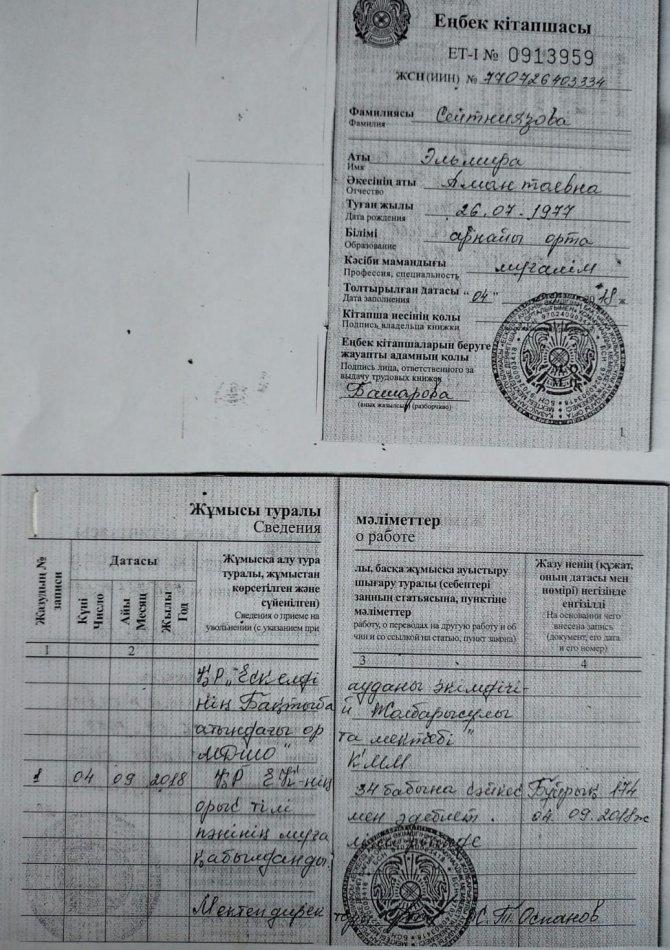 Еңбек кітапшасы
ЕТ-І № 0913959
ЖСН (ИИН) № 770726403334
Фамилиясы Сейтниязова
Фамилия
Аты Эльмира
Имя
Әкесінің аты Амантаевна
Отчество
Туған жылы 26.07.1977
Дата рождения
Білімі арнайы орта
Образование
Кәсіби мамандығы мұғалім
Профессия, специальность
Толтырылған датасы "04" 2018 ж
Дата заполнения
Кітапша иесінің қолы
Подпись владельца книжки
Еңбек кітапшаларын беруге
жауапты адамның қолы
Подпись лица, ответственного за
выдачу трудовых книжек
Башарова
(анық жазылсын) (разборчиво)
1
Жұмысы туралы мәліметтер
Сведения о работе
Жазудың №
записи
Датасы
Күні
Число
Айы
Месяц
Жылы
Год
Жұмысқа алу тура
туралы, жұмыстан
көрсетілген және
сүйенілген)
Сведения о приеме на
увольнении (с указанием при
лы, басқа жұмысқа ауыстыру
шығару туралы (себептері
заңның статьясына, пунктіне
мәліметтер
работу, о переводах на другую работу и об
чин и со ссылкой на статью, пункт закона)
Жазу ненің (құжат,
оның датасы мен
нөмірі) негізінде
енгізілді
На основании чего
внесена запись
(документ, его дата
и его номер)
1 2 3 4
ҚР "Ескелді ауданы әкімдігі-
нің Бақтыбай Жолбарысұлы
атындағы орта мектебі"
МДШО" КММ
1 04 09 2018 ҚР ЕК-нің 34 бабына сәйкес Бұйрық 174
орыс тілі мен әдебиет. 04.09.2018ж
пәнінің мұға
қабылданды.
Мектеп дирек С.Т.Оспанов